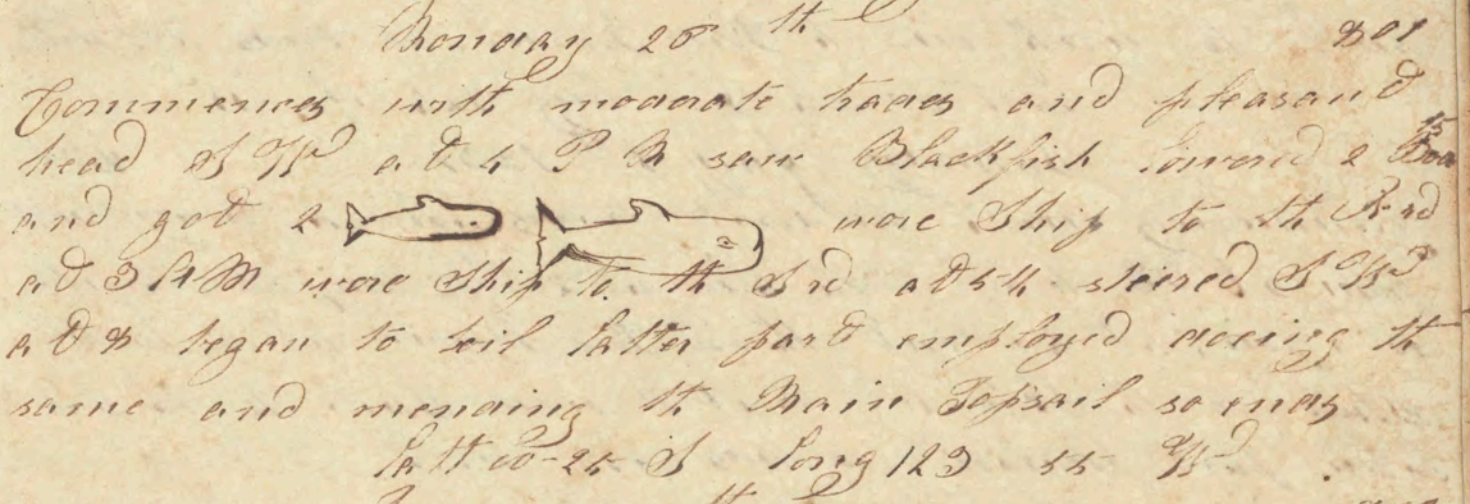 Monday 26 th 801
Commences with moderate trades and pleasant
head S Wd at 4 P M saw Blackfish lowered 2 Boats
and got 2 wore Ship to th N rd
at 3 AM wore Ship to th S rd at steered S Wd
at 8 began to boil latter part employed doeing th
same and mending th Main Topsail so ends
Latt S Long 123 W